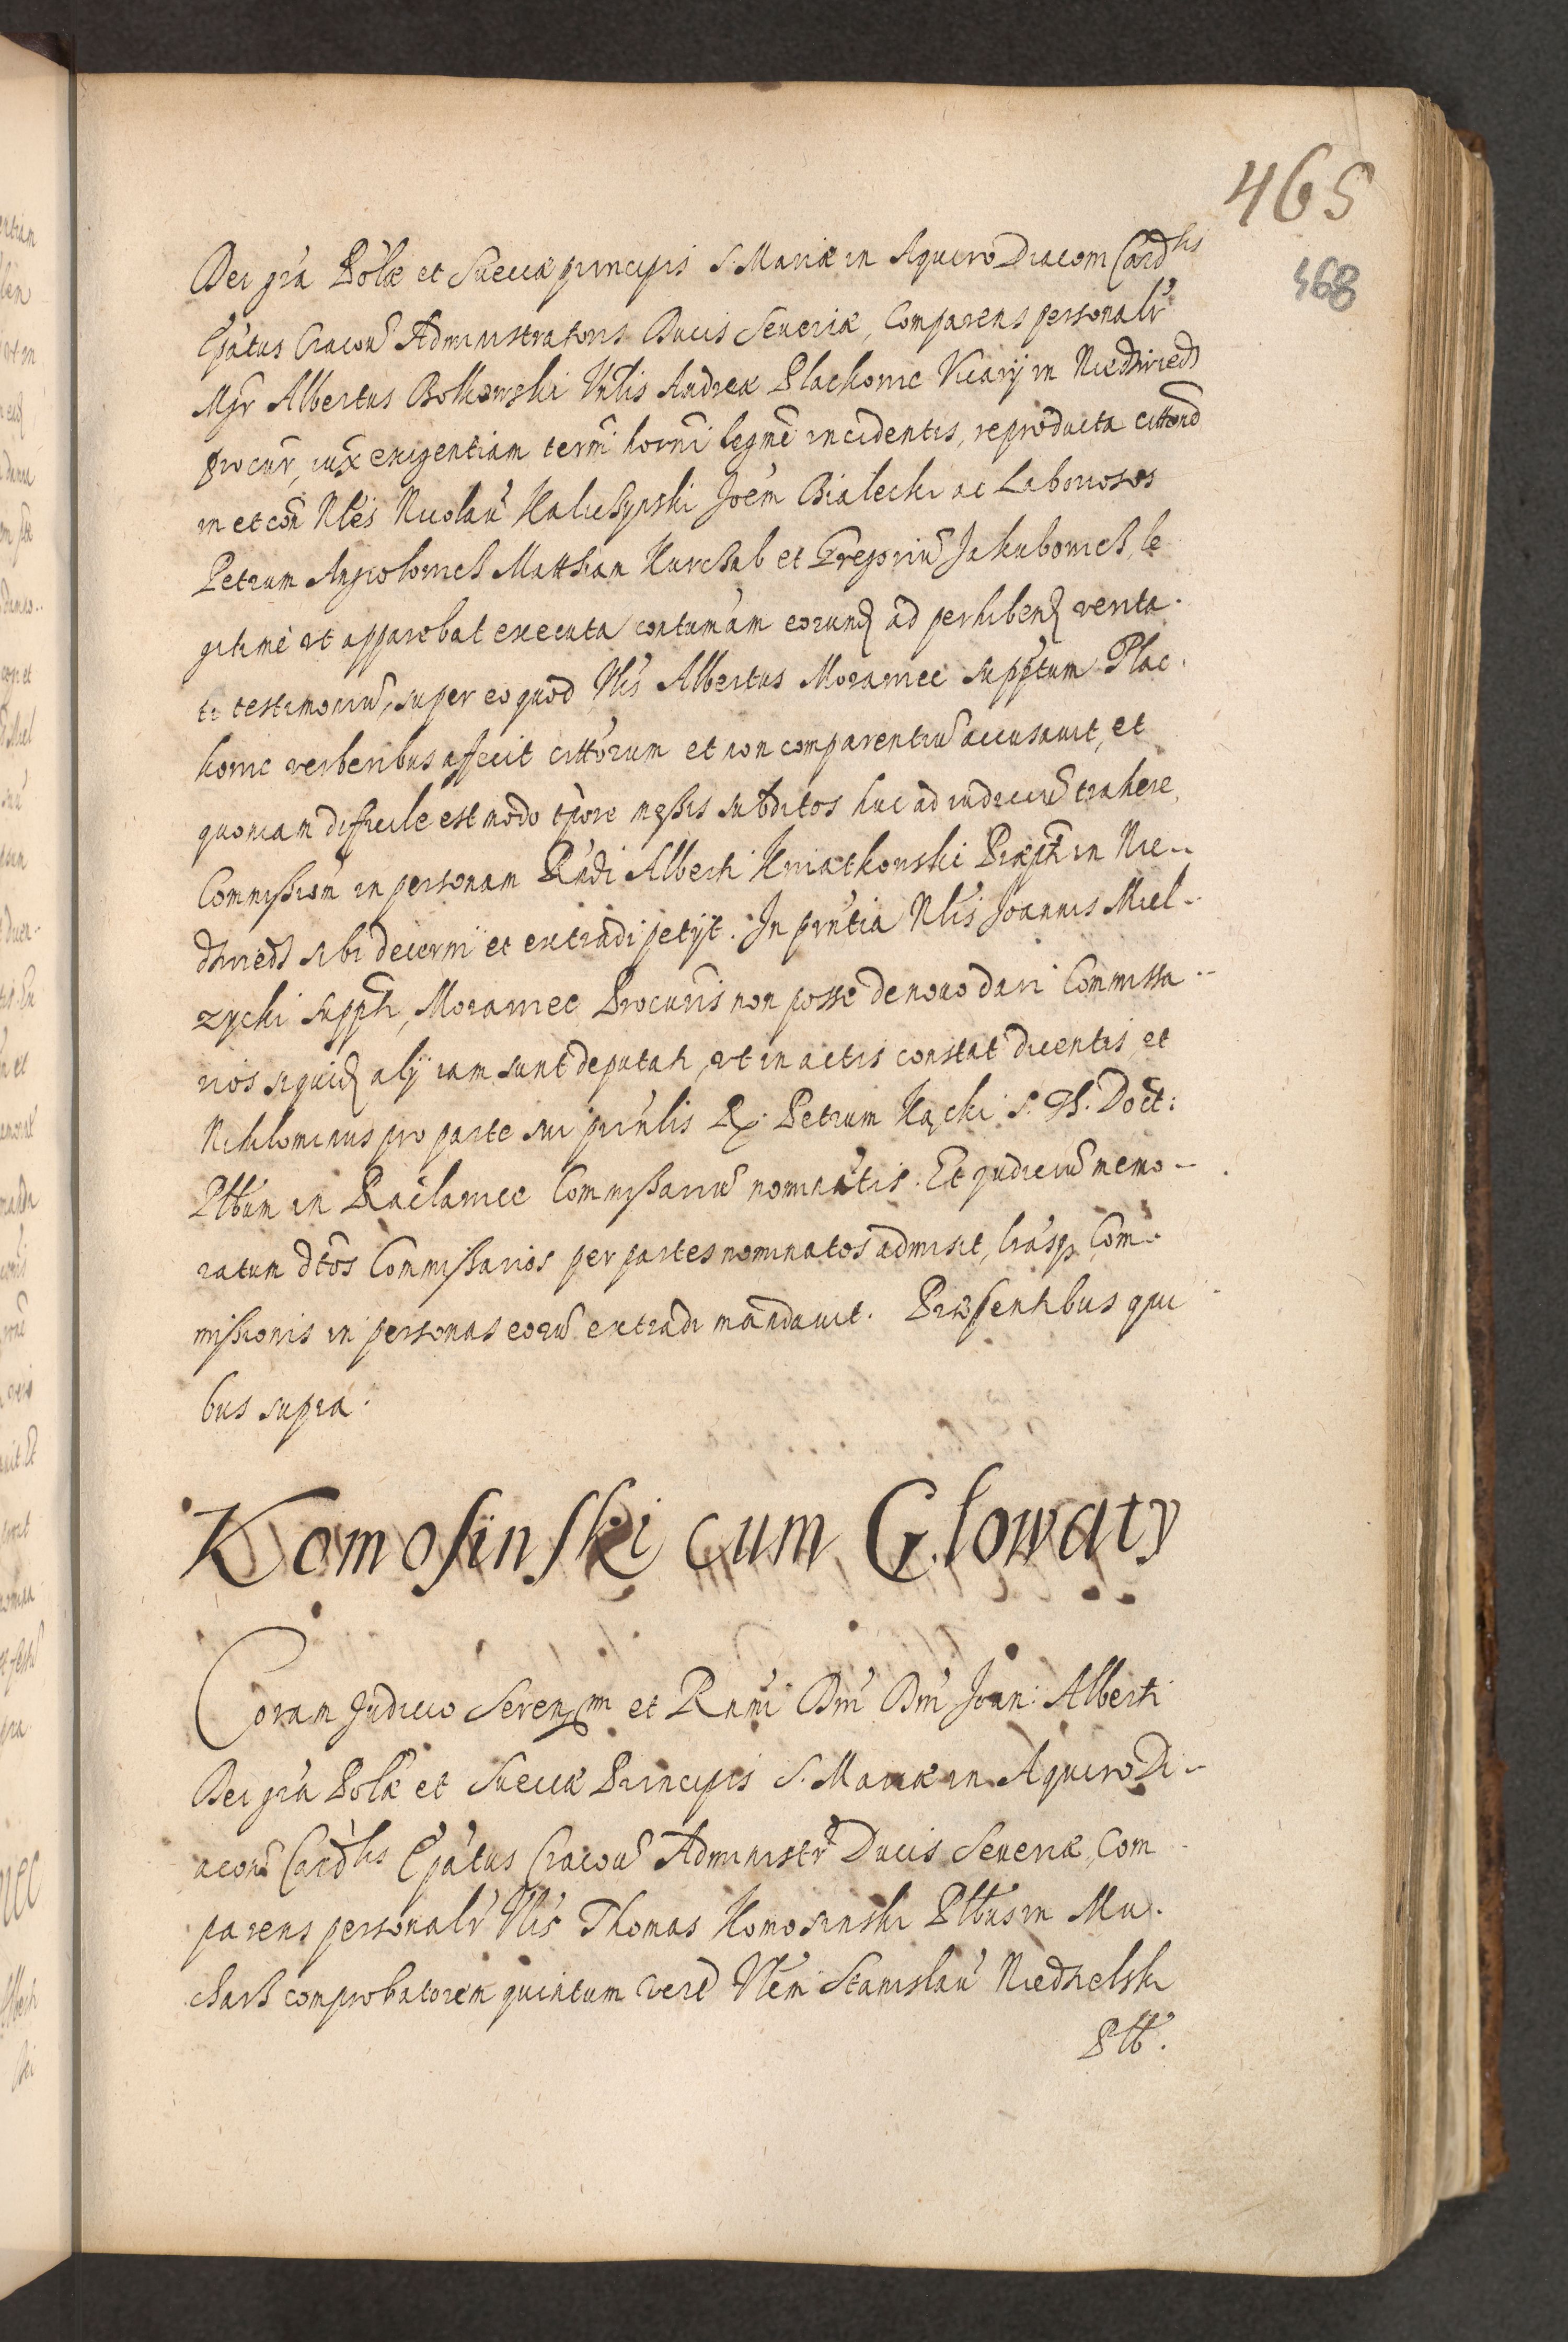 465
468
Dei gra Polae et Sueciae principis S. Mariae in Aquiro Diaconi Cardlis
Epatus Cracou Administratoris Ducis Seueriae, Comparens personalr
Mgr Albertus Bolkowski Vnlis Andreae Plackowic Vicarij in Niedzwiedz
procur, iux exigentiam termi horni legme incidentis, reproducta cittone
in et con Nles Nicolau Joem Bialecki ac Laboriosos
Petrum Matthiam et Gregoriu Jakubowich, le
gitime vt apparebat executa contumam eorund ad perhibend verita
ti testimoniu, super eo quod Vlis Albertus Morawiec supptum Plac
kowic verberibus affecit cittorum et non comparentiu accusauit, et
quoniam difficile est modo tpore messis subditos huc ad iudiciu trahere,
Commissiom in personam Rndi Alberti Kwiatkowski Praepti in Nie-
dzwiedz sibi decerni et extradi petijt. In pntia Nlis Joannis Miel-
zycki suppti, Morawiec Procuris non posse denouo dari Commissa-
rios siquid alij iam sunt deputati, vt in actis constat dicentis, et
Nihilominus pro parte sui prinlis R. Petrum Kacki S. Th. Doct:
Plbum in Raclawice Commissariu nominatis. Et Judiciu memo-
ratum dtos Commissarios per partes nominatos admisit, lrasq Com-
missionis in personas eoru extradi mandauit. Praesentibus qui
bus supra.
Komosinski cum Glowaty
Coram Judicio Serenssmi et Rnmi Dni Dni Joan: Alberti
Dei gra Polae et Sueciae Principis S. Mariae in Aquiro Di-
acon Cardlis Epatus Cracou Administr Ducis Seueriae, Com
parens personalr Vlis Thomas Komosinski Plbus in Mu
charz comprobatorem quintum vero Vlem Stanislau Niedzielski
Plb.